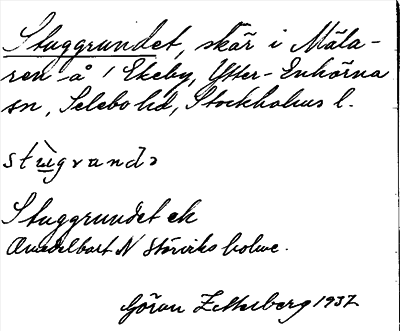 Stuggrundet, skär i Mäla-
ren å 1 Ekeby, Ytter-Enhörna
sn, Selebo hd, Stockholms l.
stùgrandə
Stuggrundet ek
Omedelbart N Storviks holme.
Göran Zetterberg 1937